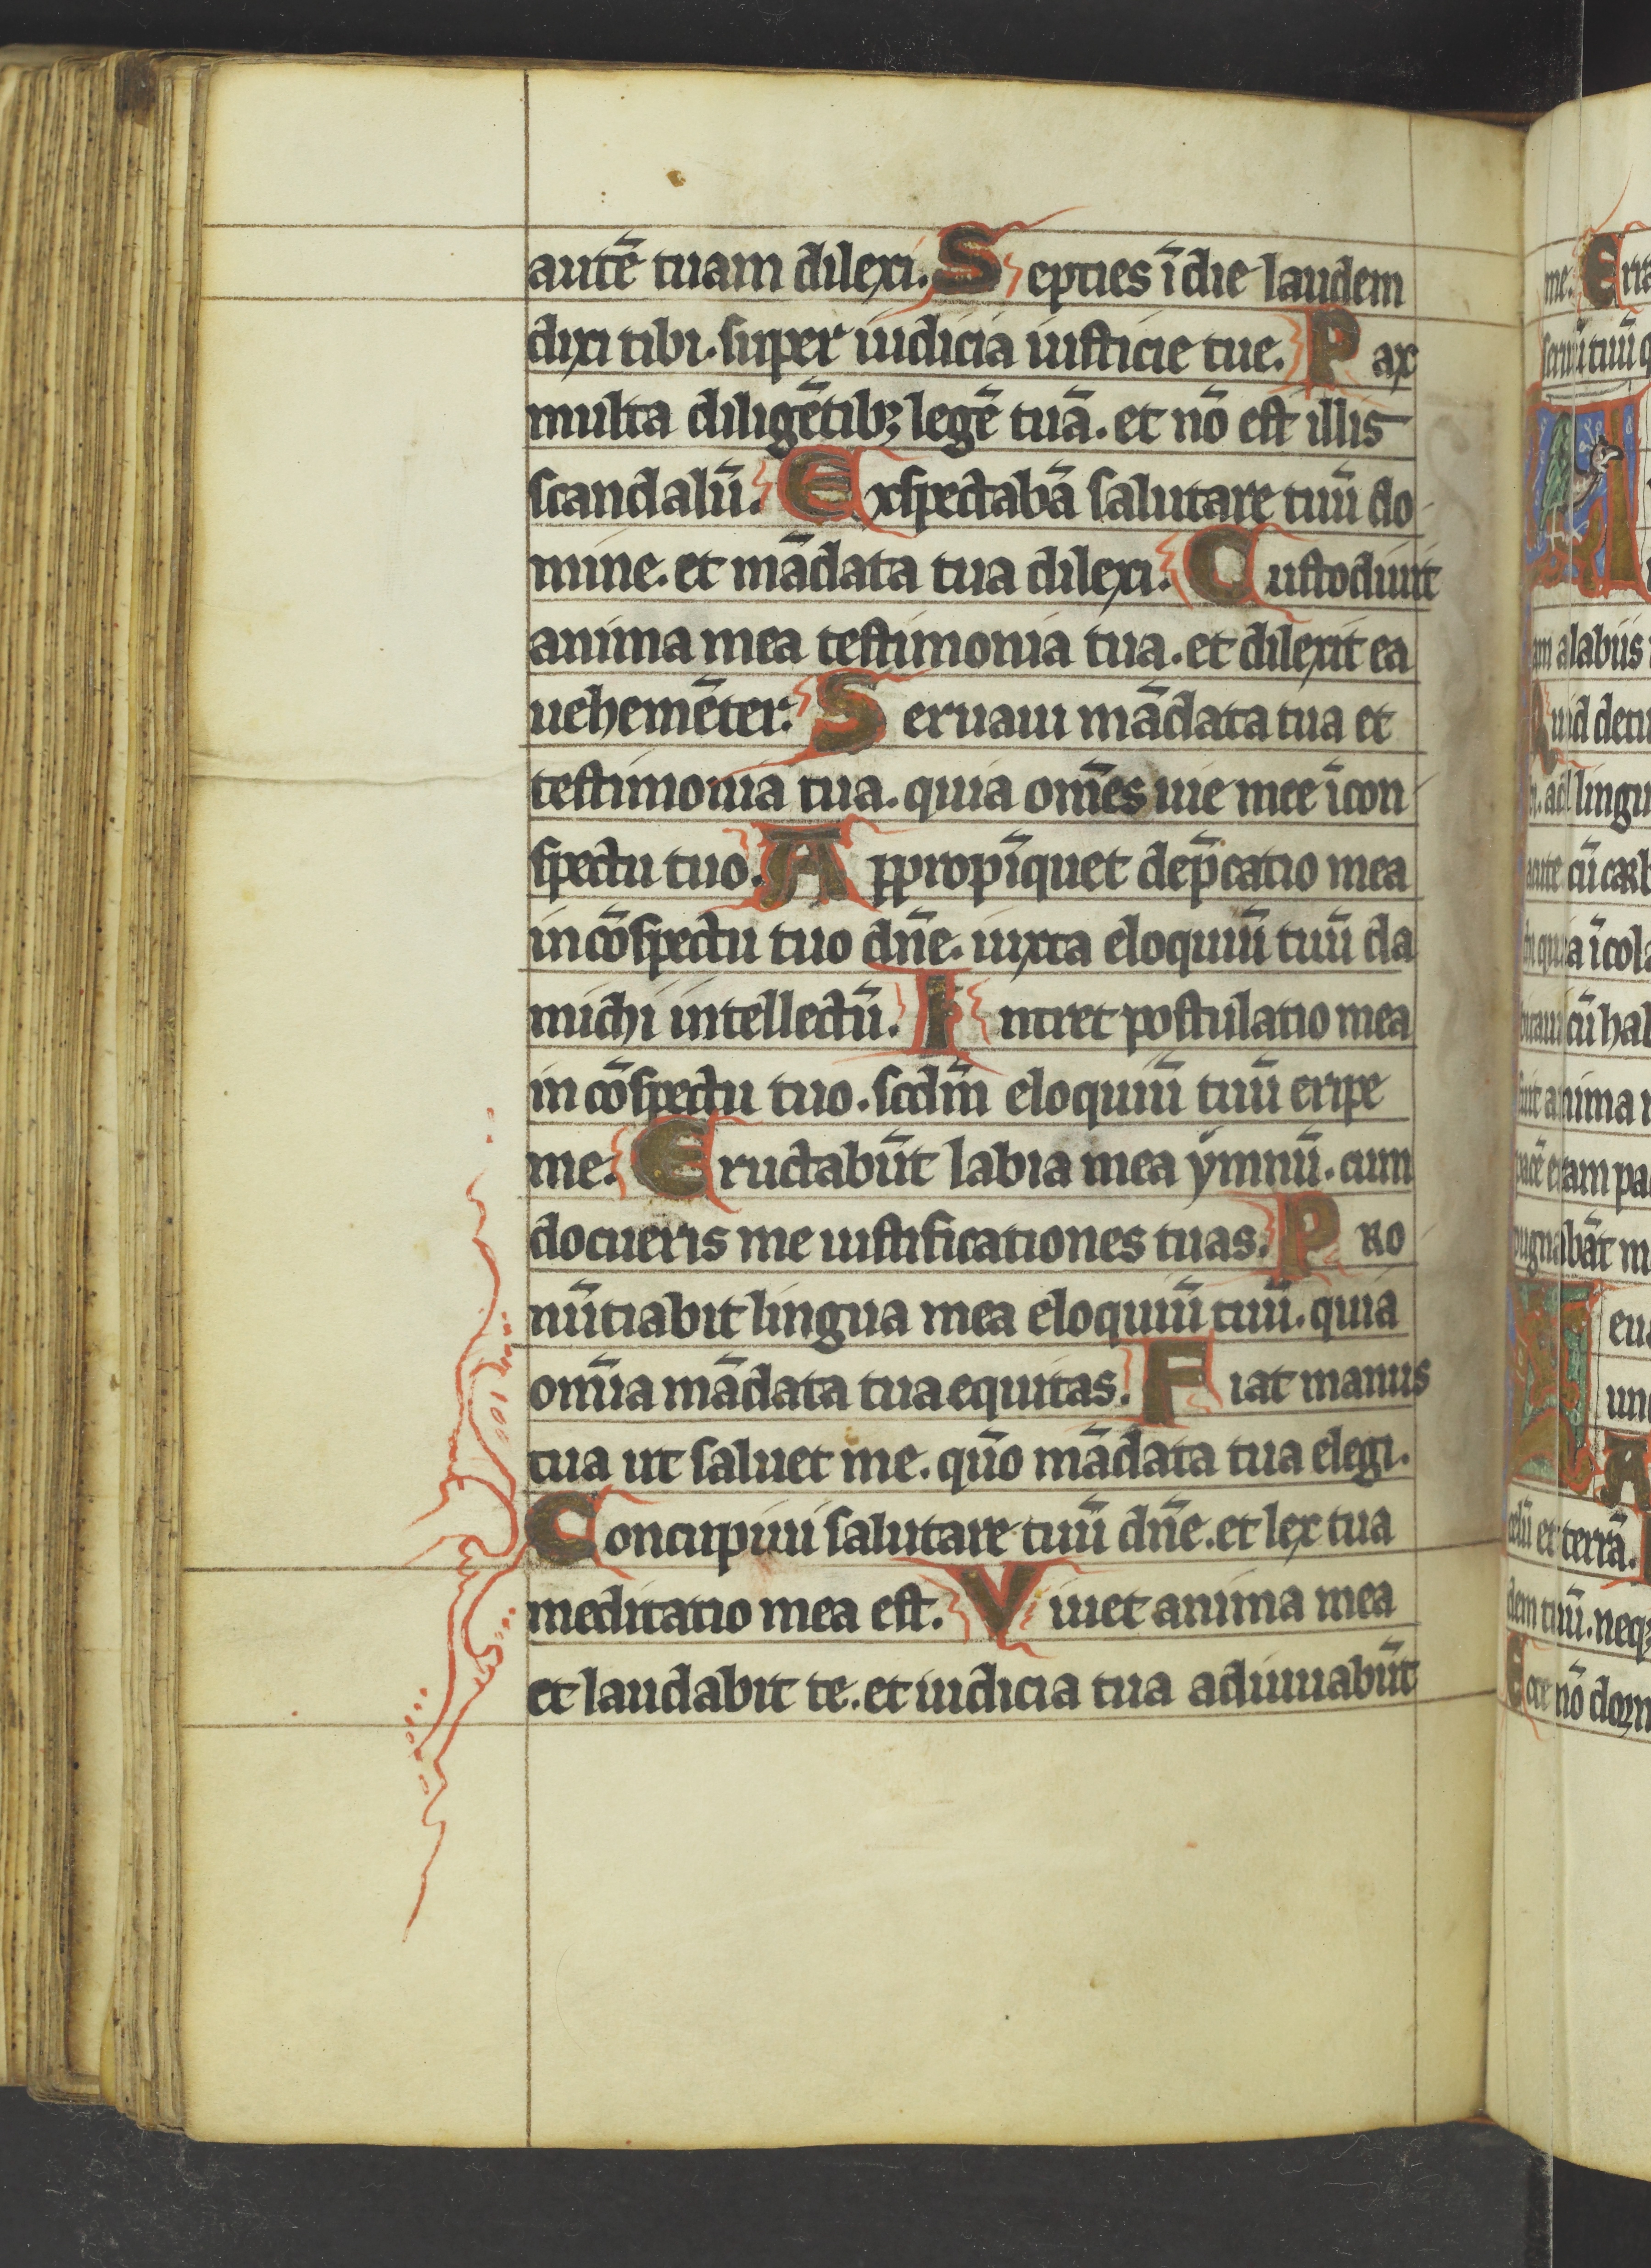 autē tuam dilexi. Septies ī die laudem
dixi tibi. super iudicia iusticie tue. Pax
multa diligētibꝫ legē tuā. et nō est illis
scandalū. Exspectabā salutare tuū do
mine. et mādata tua dilexi. Custodiuit
anima mea testimonia tua. et dilexit ea
uehemēter. Seruaui mādata tua et
testimonia tua. quia om̄es uie mee ī con
spectu tuo. Appropīquet dep̄catio mea
in cōspectu tuo dn̄e. iuxta eloquiū tuū da
michi intellectū. Intret postulatio mea
in cōspectu tuo. scdm̄ eloquiū tuū eripe
me. Eructabūt labia mea ymnū. cum
docueris me iustificationes tuas. Pro
nūtiabit lingua mea eloquiū tuū. quia
om̄ia mādata tua equitas. Fiat manus
tua ut saluet me. qūo mādata tua elegi.
Concupiui salutare tuū dn̄e. et lex tua
meditatio mea est. Viuet anima mea
et laudabit te. et iudicia tua adiuuabūt
me. Erra
tuū q
am a labiis
uid detu
ad lingu
cū carb
quia ī cola
cū hab
anima
eram pa
pugnabāt m
eu
un
celū et terrā.
dem tuū. neqꝫ
nō dorm